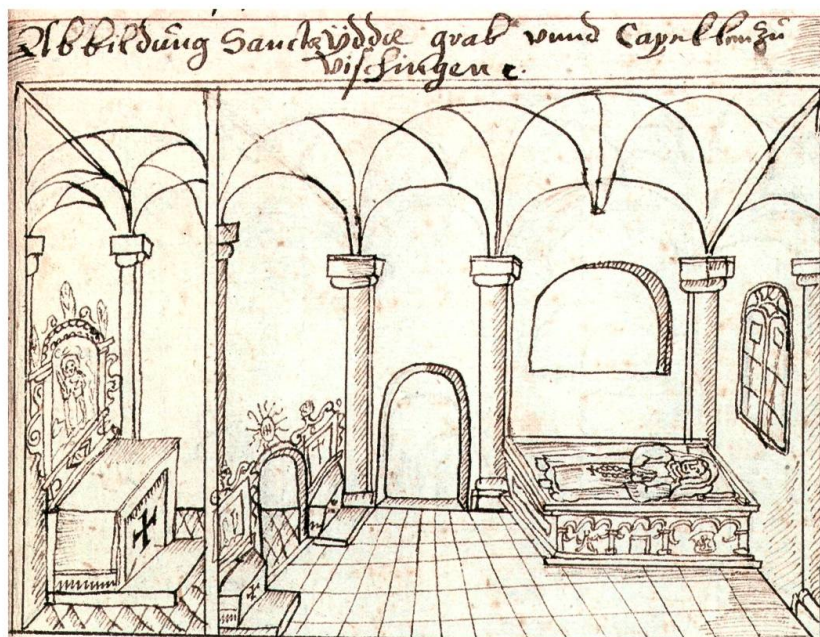 Abbildung Sanct Yddæ grab vnnd Capellen zu
Vischingen